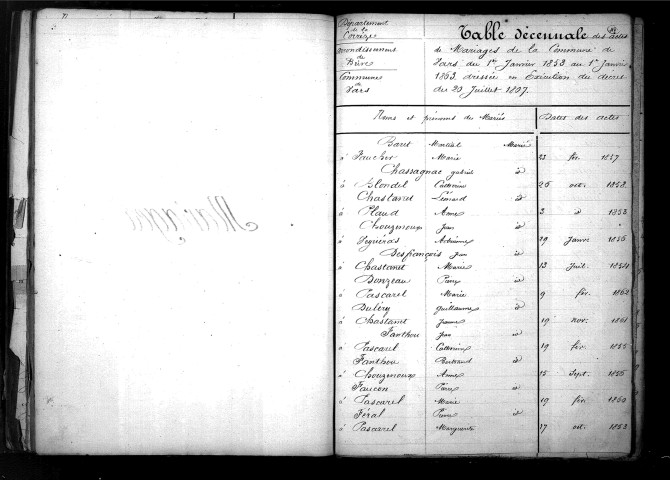 Département
de la
Corrèze
Arrondissement
de
Brive
Commune
de
Vars
Table décennale des actes
de Mariages de la Commune de
Vars du 1er Janvier 1853 au 1er Janvier
1863, dressée en Exécution du décret
du 20 Juillet 1807.
Noms et prénoms des Mariés Dates des actes
Martial Marié
à Faucher Marie 23 fév. 1857
Chassagnac gabriel id
à Blondel Catherine 26 oct. 1858
Chastanet Léonard id
à Plaud Anne 3 id 1853
Chouzenoux Jean id
à 29 Janvier 1856
Desfrançois Jean id
à Chastanet Marie 13 Juil. 1854
Bonzeau id
à Pascarel Marie 9 fév. 1862
Guillaume id
à Chastanet Jeanne 19 nov. 1861
Fanthou Jean id
à Pascarel Catherine 19 fév. 1855
Fanthou Bertrand id
à Chouzenoux Anne 15 Sept. 1856
Faucon Pierre id
à Pascarel Marie 19 fév. 1860
Féral Pierre id
à Pascarel Marguerite 17 oct. 1853